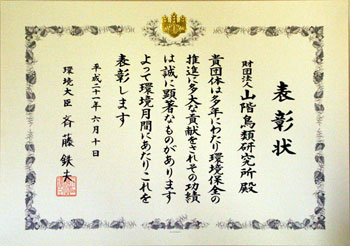 表彰状
財団法人
山階鳥類研究所殿
貴団体は多年にわたり環境保全の
推進に多大な貢献をされその功績
は誠に顕著なものがあります
よって環境月間にあたりこれを
表彰します
平成二十一年六月十日
環境大臣 斉藤鉄夫